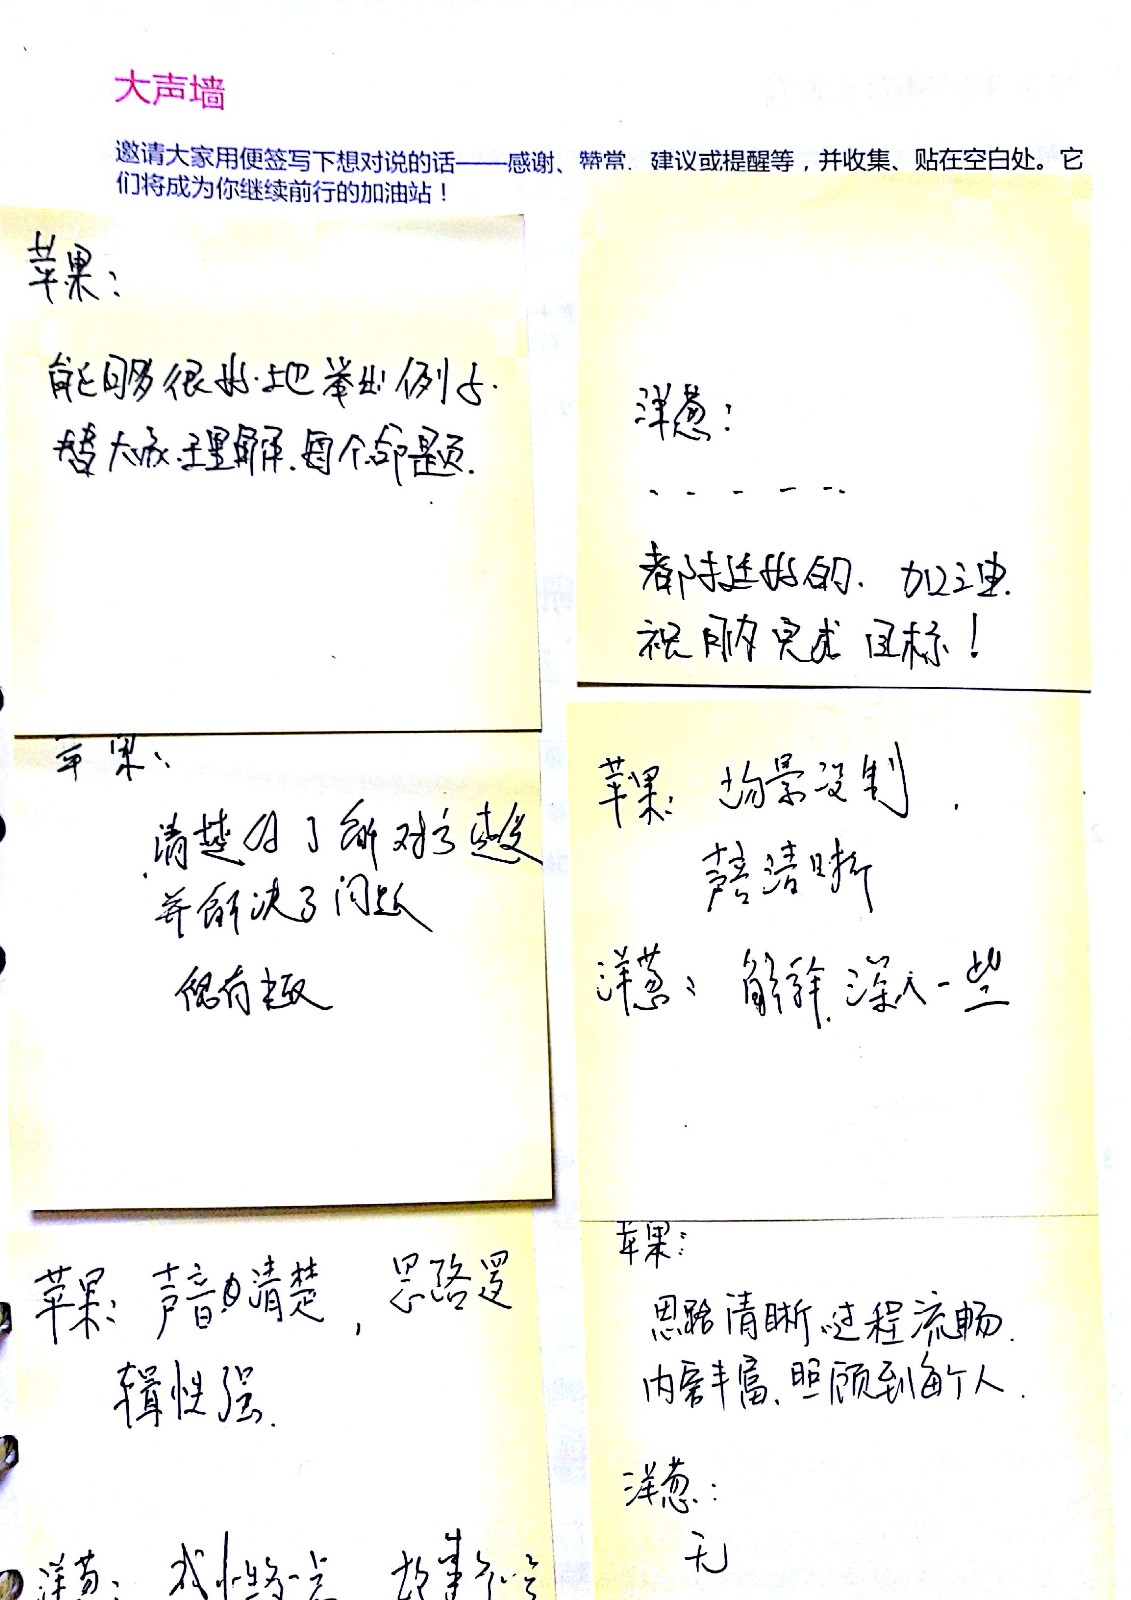 大声墙
邀请大家用便签写下想对说的话——感谢、赞赏、建议或提醒等，并收集、贴在空白处。它
们将成为你继续前行的加油站！
苹果：
能够很好地举出例子.
替大家理解每个命题.
洋葱：
- - - - - -.
都陈挺好的. 加油.
祝 完成目标！
苹果：
清楚
并解决了问题
很有趣
苹果：场景没制，
声音清晰
洋葱：解释深入一些
苹果：声音清楚，思路逻
辑性强.
苹果：
思路清晰.过程流畅.
内容丰富.照顾到每个人.
洋葱：
无
洋葱： 一点 故事